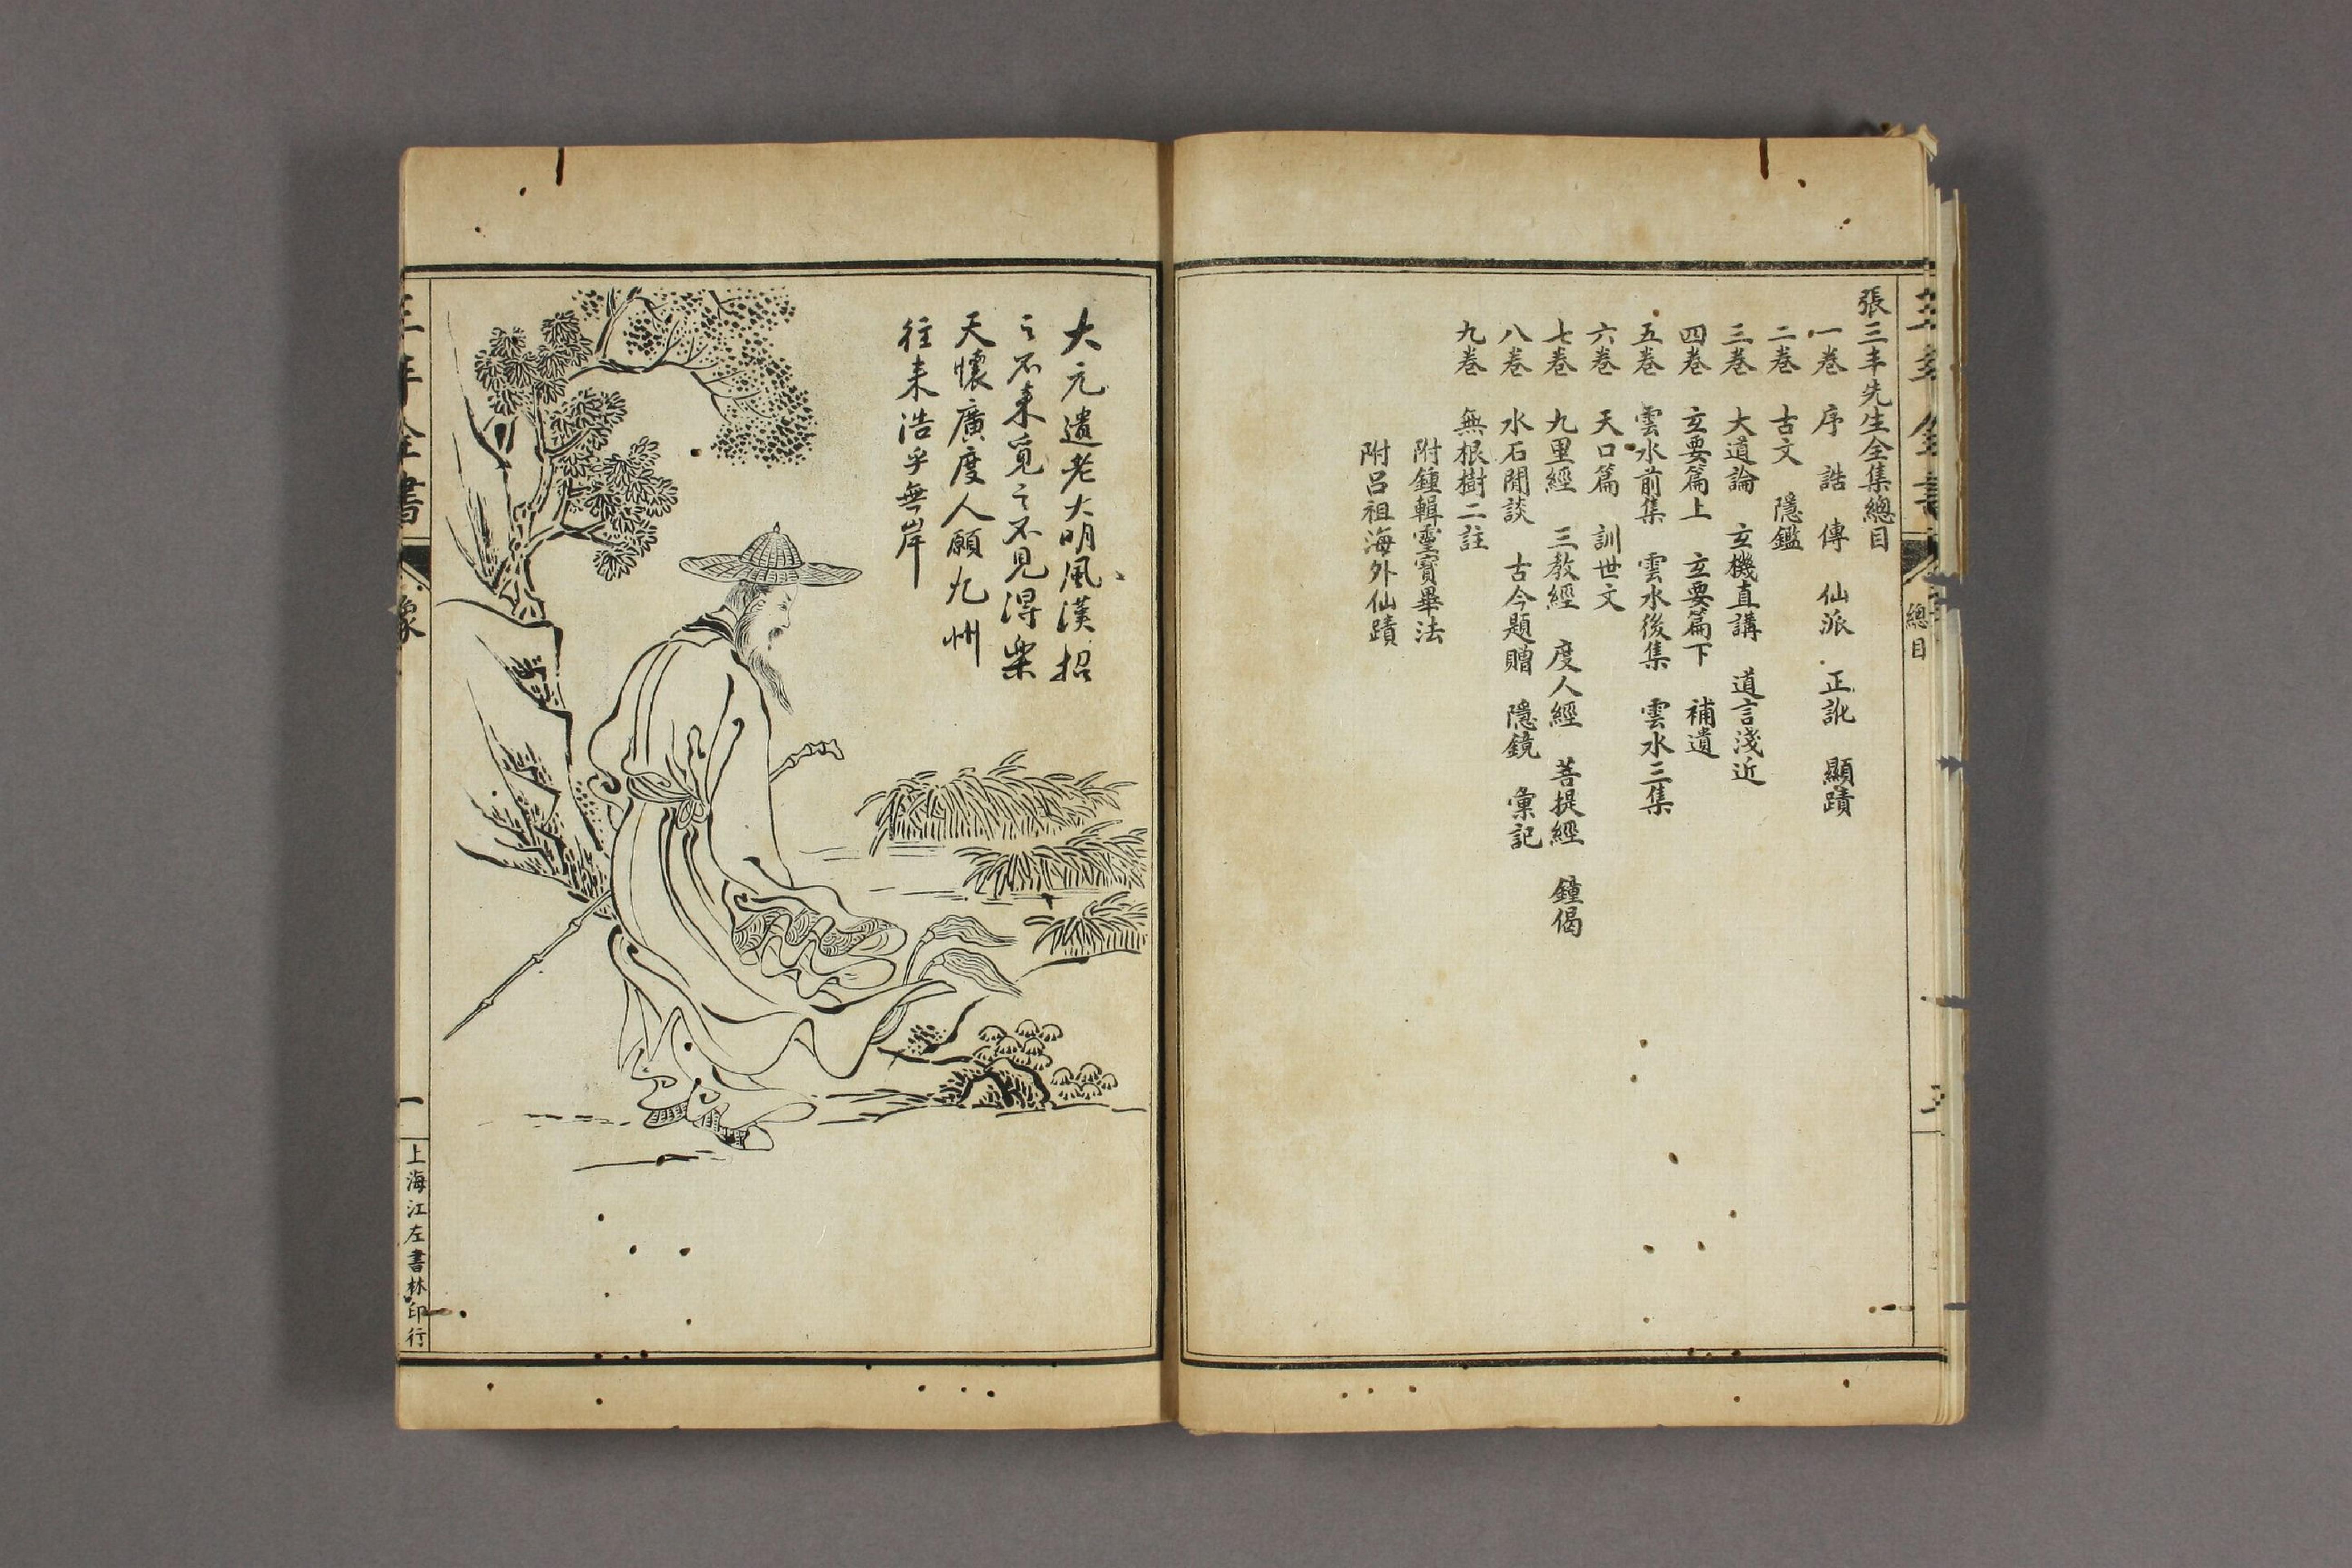 張三丰先生全集總目
一卷 序 誥 傳 仙派 正訛 顯蹟
二卷 古文 隱鑑
三卷 大道論 玄機直講 道言淺近
四卷 玄要篇上 玄要篇下 補遺
五卷 雲水前集 雲水後集 雲水三集
六卷 天口篇 訓世文
七卷 九里經 三教經 度人經 菩提經 鐘偈
八卷 水石閒談 古今題贈 隱鏡 彙記
九卷 無根樹二註
附鍾輯靈寶畢法
附呂祖海外仙蹟
總目
大元遺老大明風漢招
之不来覓之不見得樂
天懷廣度人願九州
往来浩乎無岸
三丰全書
像
一
上海江左書林印行